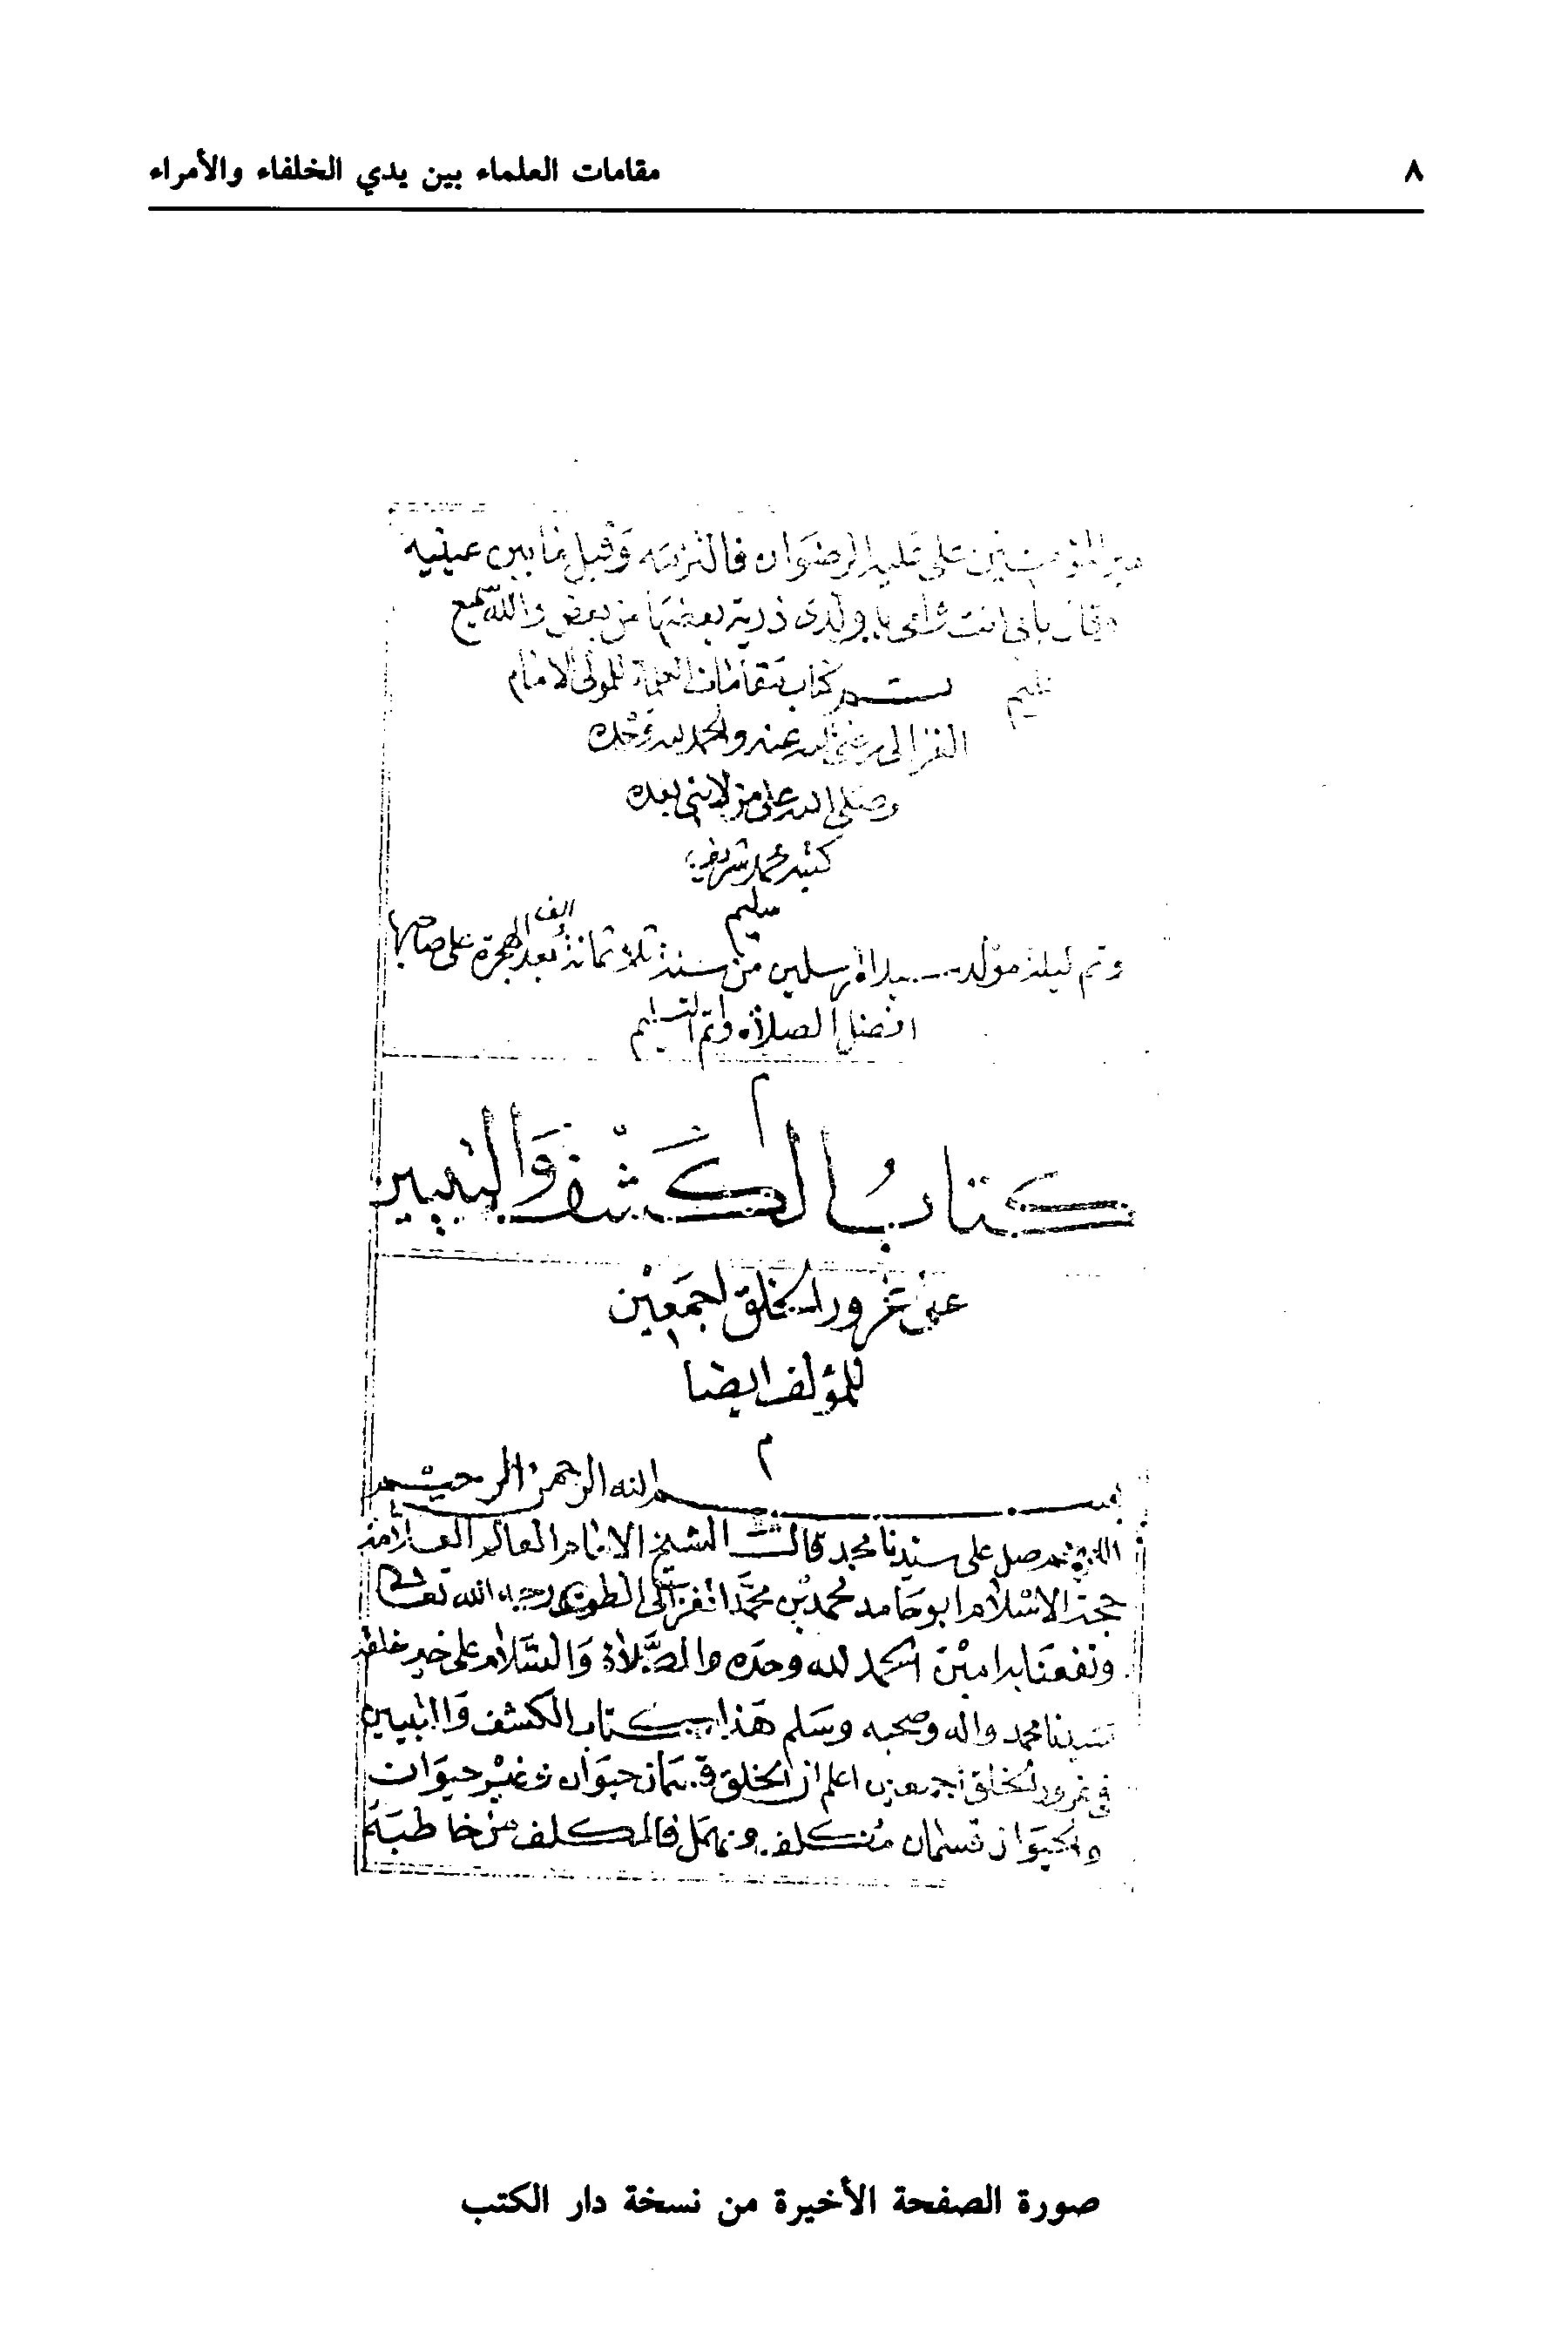 ٨
مقامات العلماء بين يدي الخلفاء والأمراء
المؤمنين على عليه الرضوان فالتزمه وقبل ما بين عينيه
وقال بأبى انت وامى يا ولدى ذرية بعضها من بعض والله سميع
عليم تم كتاب مقامات العلماء للمولى الامام
الغزالى رضى الله عنه والحمد لله وحده
وصلى الله على من لا نبى بعده
كتبه محمد شريف
سليم
وتم ليلة مولد سيد المرسلين من سنة ثلاثمائة والف بعد الهجرة على صاحبها
افضل الصلاة واتم التسليم
م
كتاب الكشف والتبيين
على غرور الخلق اجمعين
للمؤلف ايضا
م
بسم الله الرحمن الرحيم
اللهم صل على سيدنا محمد قال الشيخ الامام العالم العلامة
حجة الاسلام ابو حامد محمد بن محمد الغزالى الطوسى رحمه الله تعالى
ونفعنا به امين الحمد لله وحده والصلاة والسلام على خير خلقه
سيدنا محمد واله وصحبه وسلم هذا كتاب الكشف والتبيين
فى غرور الخلق اجمعين اعلم ان الخلق قسمان حيوان وغير حيوان
والحيوان قسمان مكلف ومهمل فالمكلف من خاطبه
صورة الصفحة الأخيرة من نسخة دار الكتب